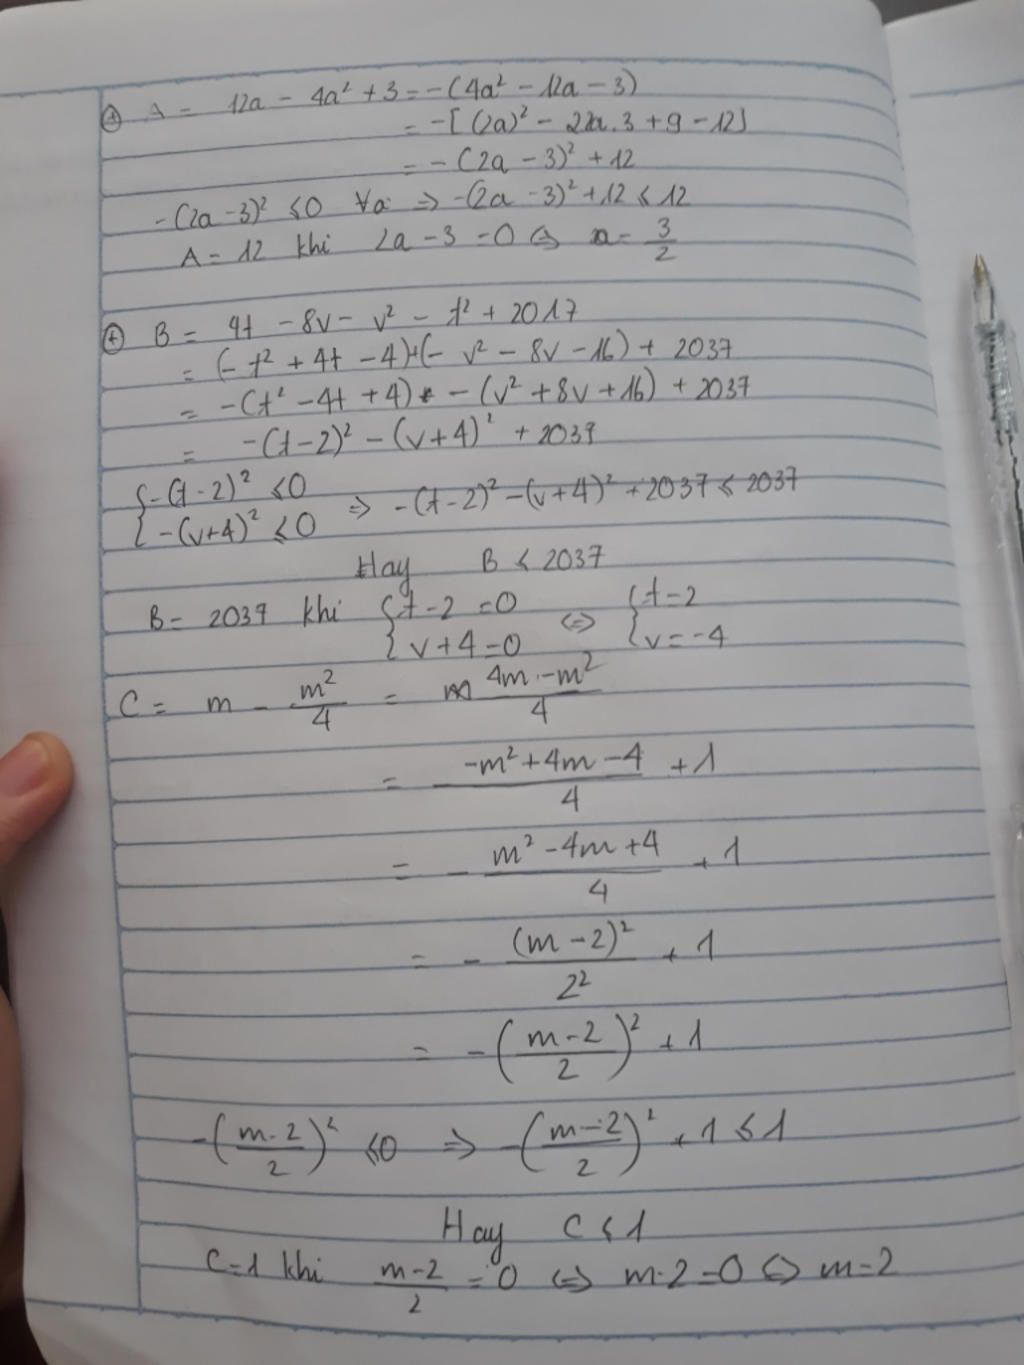 + A = 12a - 4a² + 3 = -(4a² - 12a - 3)
= -[(2a)² - 2.2a.3 + 9 - 12]
= -(2a - 3)² + 12
-(2a - 3)² ≤ 0 ∀a ⇒ -(2a - 3)² + 12 ≤ 12
A = 12 khi 2a - 3 = 0 ⇔ a = 3/2
+ B = 4t - 8v - v² - t² + 2017
= (-t² + 4t - 4) + (-v² - 8v - 16) + 2037
= -(t² - 4t + 4) - (v² + 8v + 16) + 2037
= -(t - 2)² - (v + 4)² + 2037
{ -(t - 2)² ≤ 0
{ -(v + 4)² ≤ 0 ⇒ -(t - 2)² - (v + 4)² + 2037 ≤ 2037
Hay B ≤ 2037
B = 2037 khi { t - 2 = 0 ⇔ { t = 2
{ v + 4 = 0 { v = -4
C = m - m²/4 = (4m - m²)/4
= (-m² + 4m - 4)/4 + 1
= - (m² - 4m + 4)/4 + 1
= - (m - 2)²/2² + 1
= -((m - 2)/2)² + 1
-((m - 2)/2)² ≤ 0 ⇒ -((m - 2)/2)² + 1 ≤ 1
Hay C ≤ 1
C = 1 khi (m - 2)/2 = 0 ⇔ m - 2 = 0 ⇔ m = 2